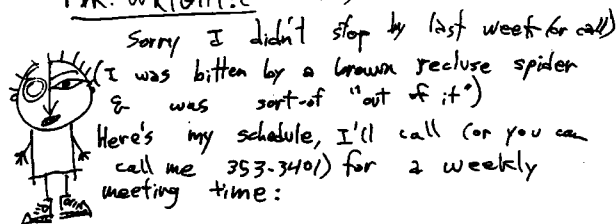 DR. WRIGHT:
Sorry I didn't stop by last week (or call)
(I was bitten by a brown recluse spider
& was sort-of "out of it")
Here's my schedule, I'll call (or you can
call me 353-3401) for a weekly
meeting time: